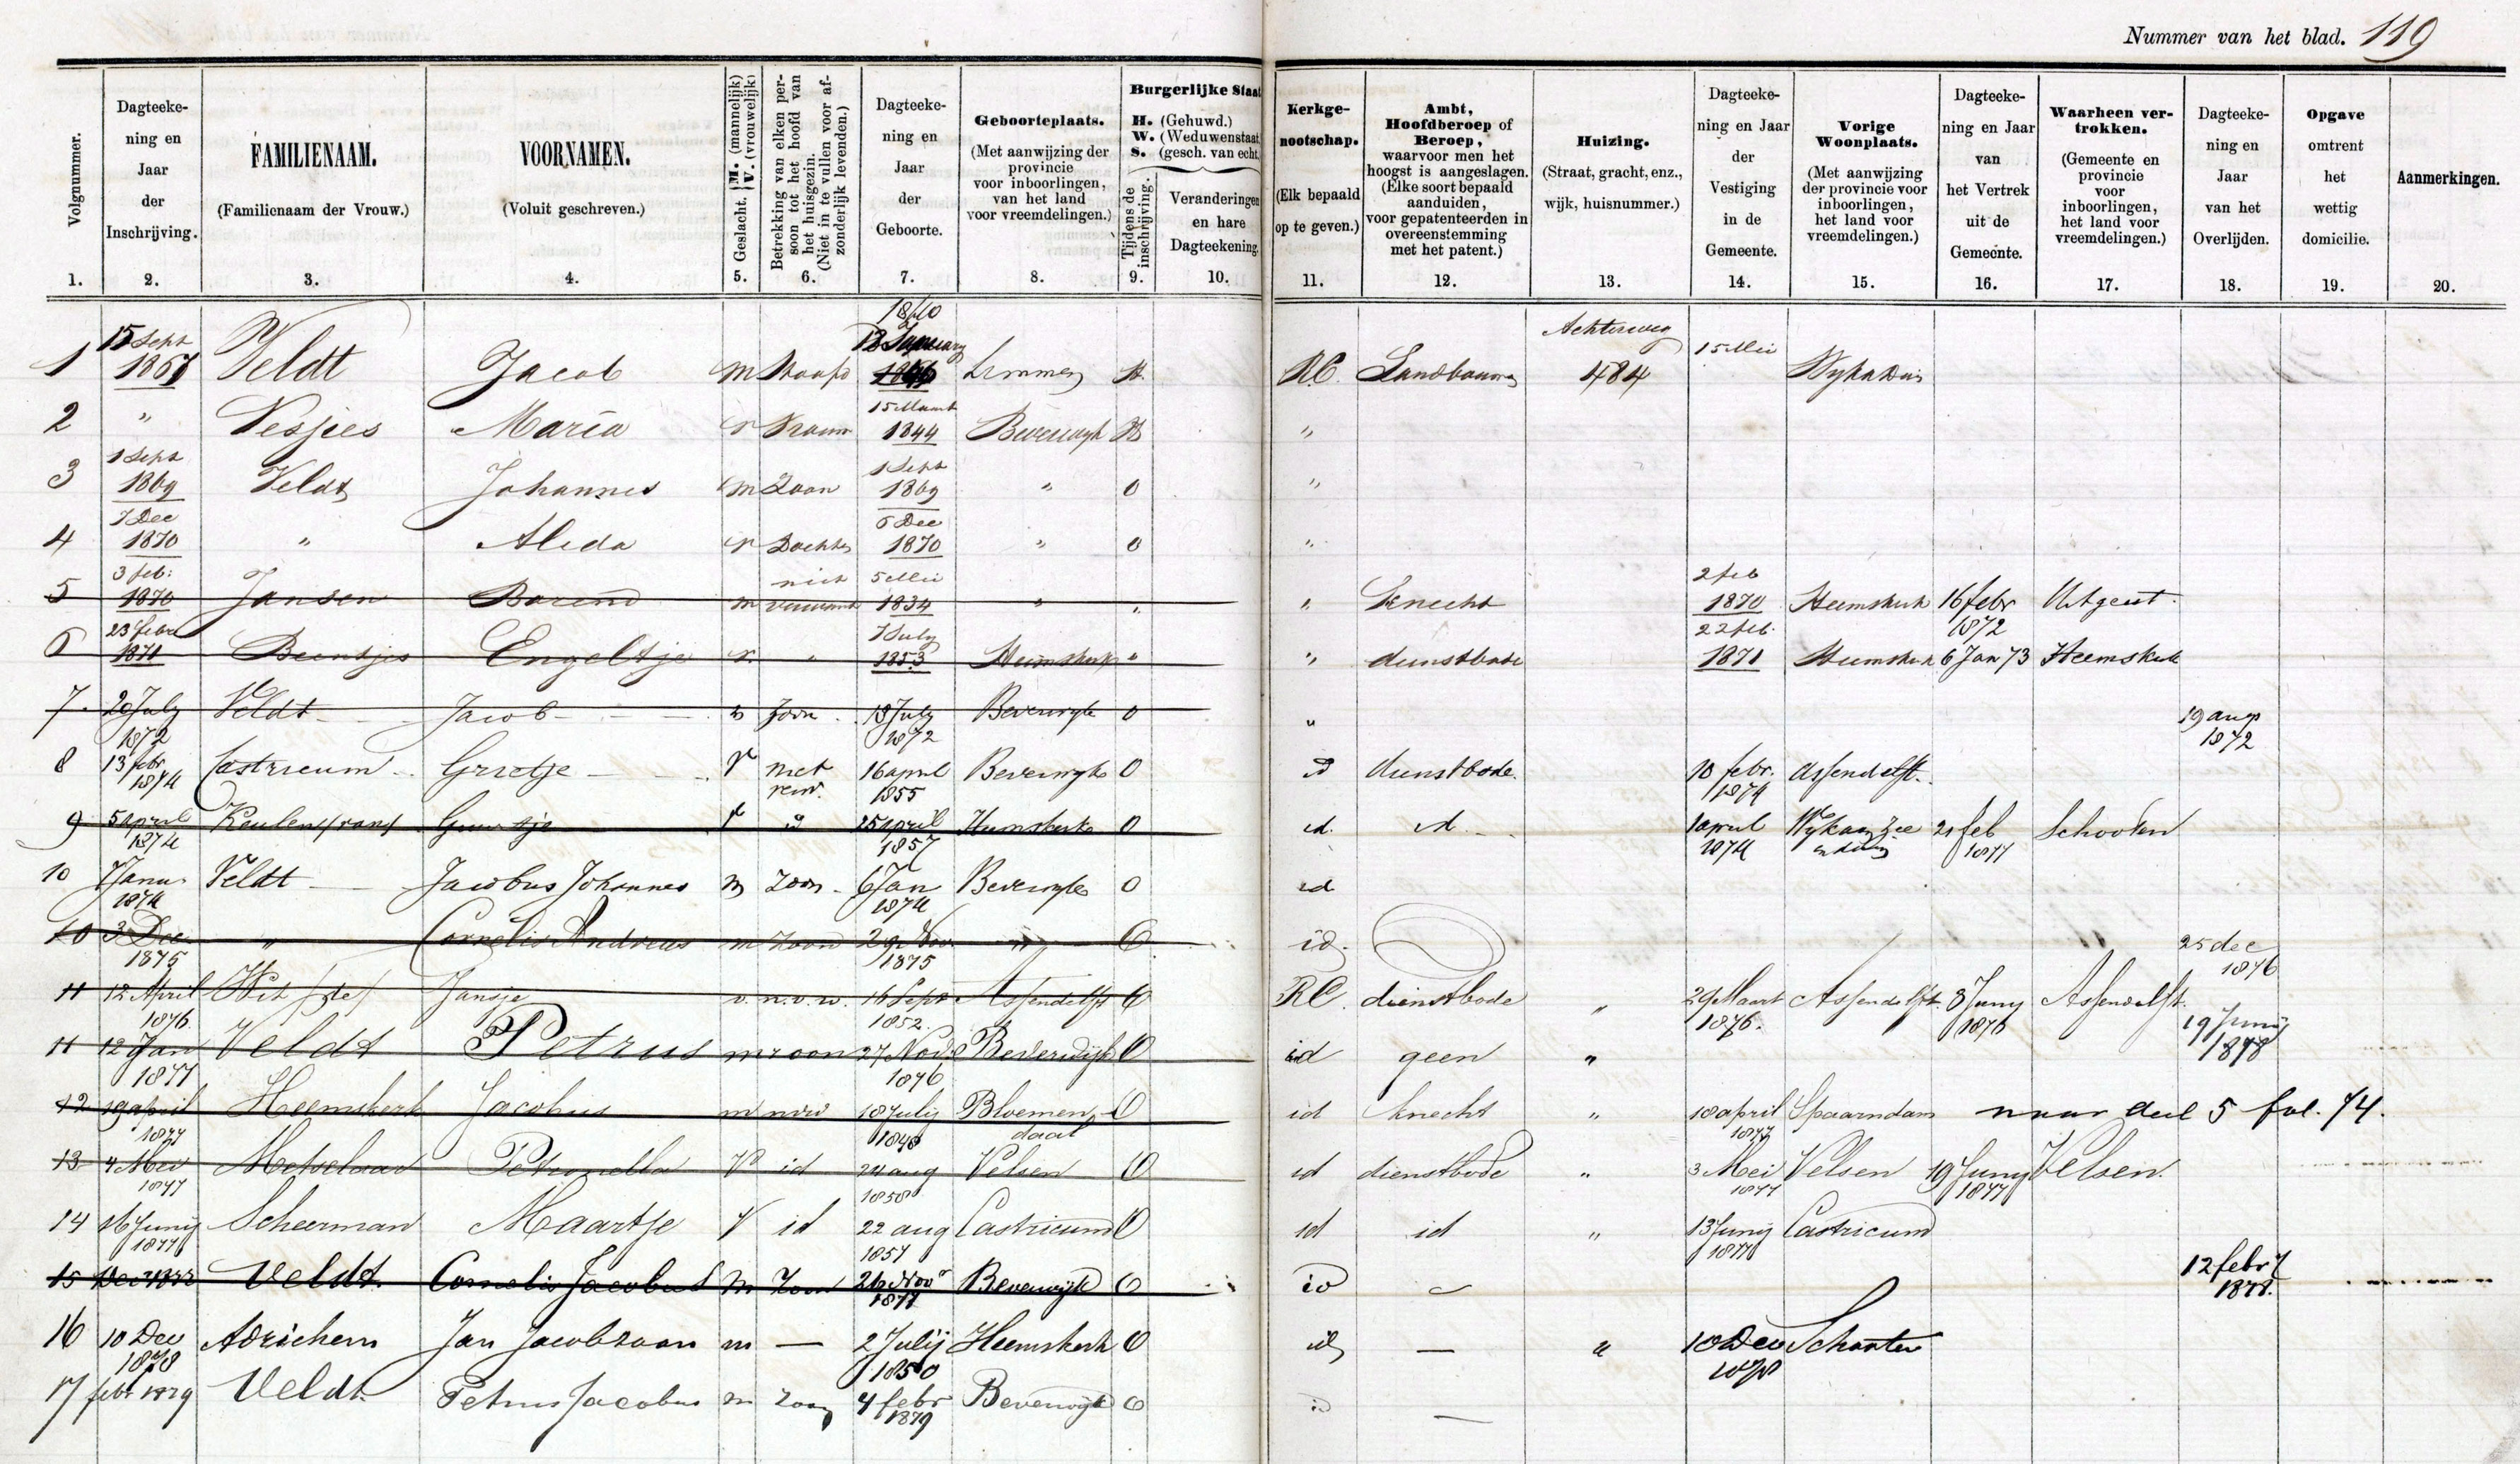 Nummer van het blad. 119
Volgnummer. 1.
Dagteekening en Jaar der Inschrijving. 2.
FAMILIENAAM. (Familienaam der Vrouw.) 3.
VOORNAMEN. (Voluit geschreven.) 4.
Geslacht. { M. (mannelijk) V. (vrouwelijk) 5.
Betrekking van elken persoon tot het hoofd van het huisgezin. (Niet in te vullen voor afzonderlijk levenden.) 6.
Dagteekening en Jaar der Geboorte. 7.
Geboorteplaats. (Met aanwijzing der provincie voor inboorlingen, van het land voor vreemdelingen.) 8.
Burgerlijke Staat H. (Gehuwd.) W. (Weduwenstaat. S. (gesch. van echt.
Tijdens de inschrijving. 9.
Veranderingen en hare Dagteekening. 10.
Kerkgenootschap. (Elk bepaald op te geven.) 11.
Ambt, Hoofdberoep of Beroep, waarvoor men het hoogst is aangeslagen. (Elke soort bepaald aanduiden, voor gepatenteerden in overeenstemming met het patent.) 12.
Huizing. (Straat, gracht, enz., wijk, huisnummer.) 13.
Dagteekening en Jaar der Vestiging in de Gemeente. 14.
Vorige Woonplaats. (Met aanwijzing der provincie voor inboorlingen, het land voor vreemdelingen.) 15.
Dagteekening en Jaar van het Vertrek uit de Gemeente. 16.
Waarheen vertrokken. (Gemeente en provincie voor inboorlingen, het land voor vreemdelingen.) 17.
Dagteekening en Jaar van het Overlijden. 18.
Opgave omtrent het wettig domicilie. 19.
Aanmerkingen. 20.
1 15 Sept Veldt Jacob m Hoofd 1840 January Limmen H. RC. Landbouwer Achterweg 484 15 Mei
2 " Nesjees Maria v Vrouw 15 Maart 1844 Beverwijk H "
3 1 Sept 1869 Veldt Johannes m Zoon 1 Sept 1869 " O "
4 7 Dec 1870 " Alida v Dochter 6 Dec 1870 " O "
5 3 feb: 1870 Jansen Barend m niet verwant 5 Mei 1834 " " " Knecht 2 feb 1870 Heemskerk 16 febr 1872 Uitgeest
6 23 febr 1871 Beentjes Engeltje v. " 7 July 1853 Heemskerk " " dienstbode 22 feb. 1871 Heemskerk 6 Jan 73 Heemskerk
7 20 July 1872 Veldt Jacob m zoon 18 July 1872 Beverwyk O " 19 aug 1872
8 13 febr 1874 Castricum Grietje V niet verw. 16 april 1855 Beverwyk O id dienstbode. 10 febr. 1874 Assendelft.
9 5 april 1874 Keulen (van) Geertje V id 25 april 1857 Heemskerk O id. id 1 april 1874 Wykaanzee en duin 21 feb 1877 Schooten
10 7 Janu 1874 Veldt Jacobus Johannes m zoon 6 Jan 1874 Beverwyk O id
10 3 Dec 1875 " Cornelis Andreas m zoon 29 Nov. 1875 " O id. 25 dec 1876
11 12 April 1876. Wit (de) Jansje v. n.v.w. 16 Sept 1852. Assendelft O RC. dienstbode " 29 Maart 1876. Assendelft. 8 Juny 1876 Assendelft.
11 12 Jan 1877 Veldt Petrus m zoon 27 Nov. 1876 Beverwijk O id geen " 19 Junij 1878
12 19 april 1877 Heemskerk Jacobus m nvw 18 July Bloemendaal O id knecht " 18 april 1877 Spaarndam naar deel 5 fol. 74.
13 4 Mei 1877 Metselaar Petronella V id 24 aug 1858 Velsen O id dienstbode " 3 Mei 1877 Velsen 19 Juny 1877 Velsen.
14 16 Junij 1877 Scheerman Maartje V id 22 aug 1857 Castricum O id id " 13 Junij 1877 Castricum
15 Dec 1877 Veldt. Cornelis Jacobus m Zoon 26 Nov 1877 Beverwijk O id 12 febr 1878.
16 10 Dec 1878 Adrichem Jan Jacobzoon m — 2 Julij 1850 Heemskerk O id — " 10 Dec 1878 Schooten
17 febr 1879 Veldt Petrus Jacobus m zoon 4 febr 1879 Beverwijk O id —